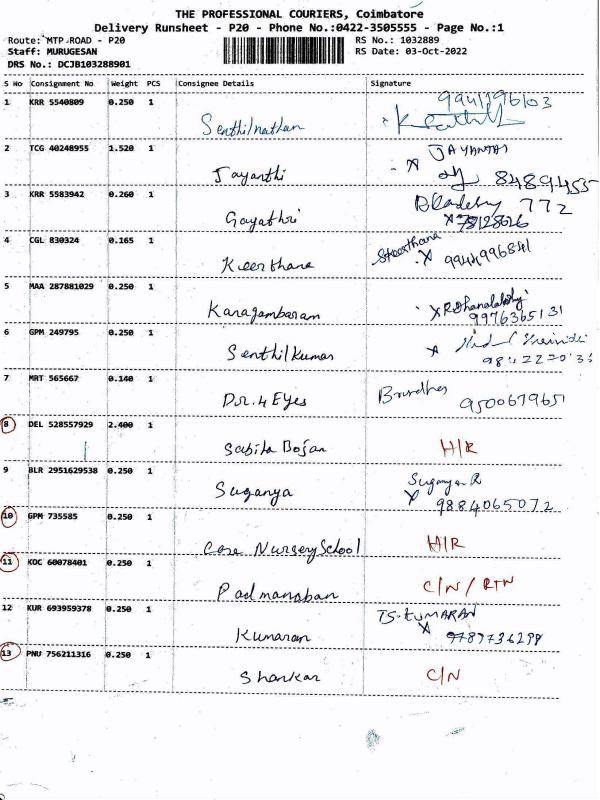 THE PROFESSIONAL COURIERS, Coimbatore
Delivery Runsheet - P20 - Phone No.:0422-3505555 - Page No.:1
Route: MTP ROAD - P20
RS No.: 1032889
Staff: MURUGESAN
RS Date: 03-Oct-2022
DRS No.: DCJB103288901
S No Consignment No Weight PCS Consignee Details Signature
1 KRR 5540809 0.250 1
Senthilnathan
2 TCG 40248955 1.520 1 JAYANTHI
Jayanthi 8489455
3 KRR 5583942 0.260 1 772
Gayathri
4 CGL 830324 0.165 1 Keerthana
Keerthana 9944996841
5 MAA 287881029 0.250 1
Kanagambaram 9976365131
6 GPM 249795 0.250 1
Senthilkumar
7 MRT 565667 0.140 1
Dr. 4 Eyes 950067965
8 DEL 528557929 2.400 1
Sabita Bojan H/R
9 BLR 2951629538 0.250 1 Suganya R
Suganya 9884065072
10 GPM 735585 0.250 1
Care Nursery School H/R
11 KOC 60078401 0.250 1
Padmanaban C/N / RTN
12 KUR 693959378 0.250 1 TS-KUMARAN
Kumaran 9789736298
13 PNU 756211316 0.250 1
Shankar C/N